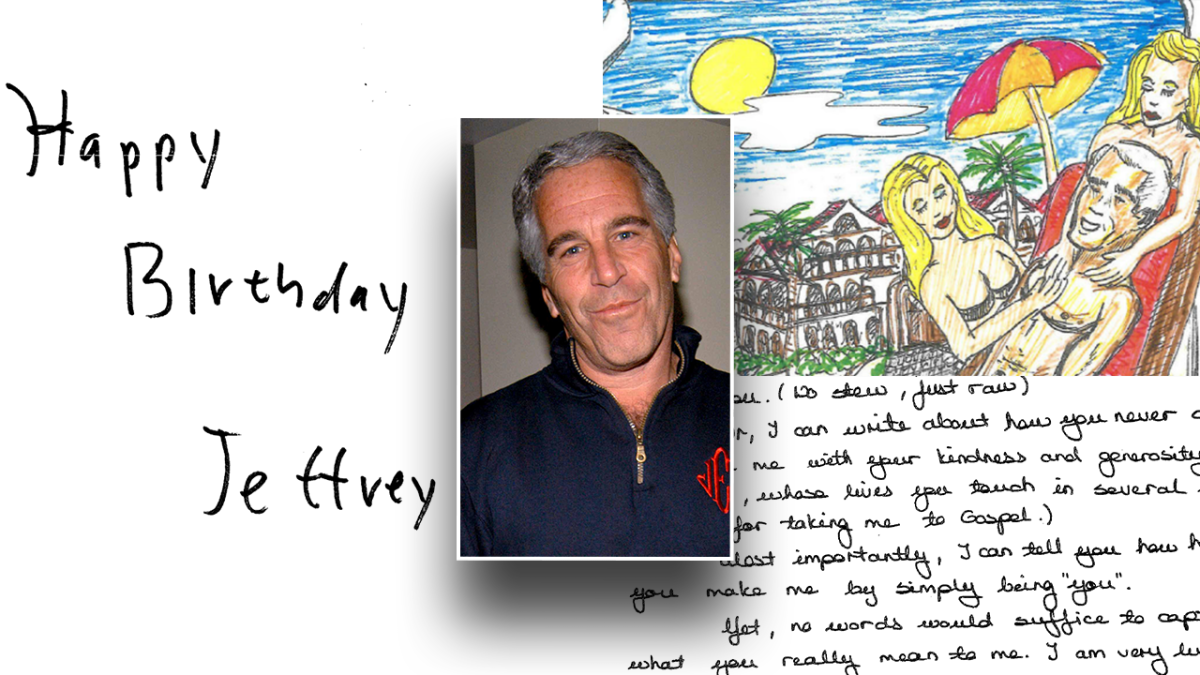 Happy
Birthday
Jeffrey
(No stew, just raw)
I can write about how you never
me with your kindness and generosity
, whose lives you touch in several
for taking me to Gospel.)
Most importantly, I can tell you how
you make me by simply being "you".
Yet, no words would suffice to
what you really mean to me. I am very